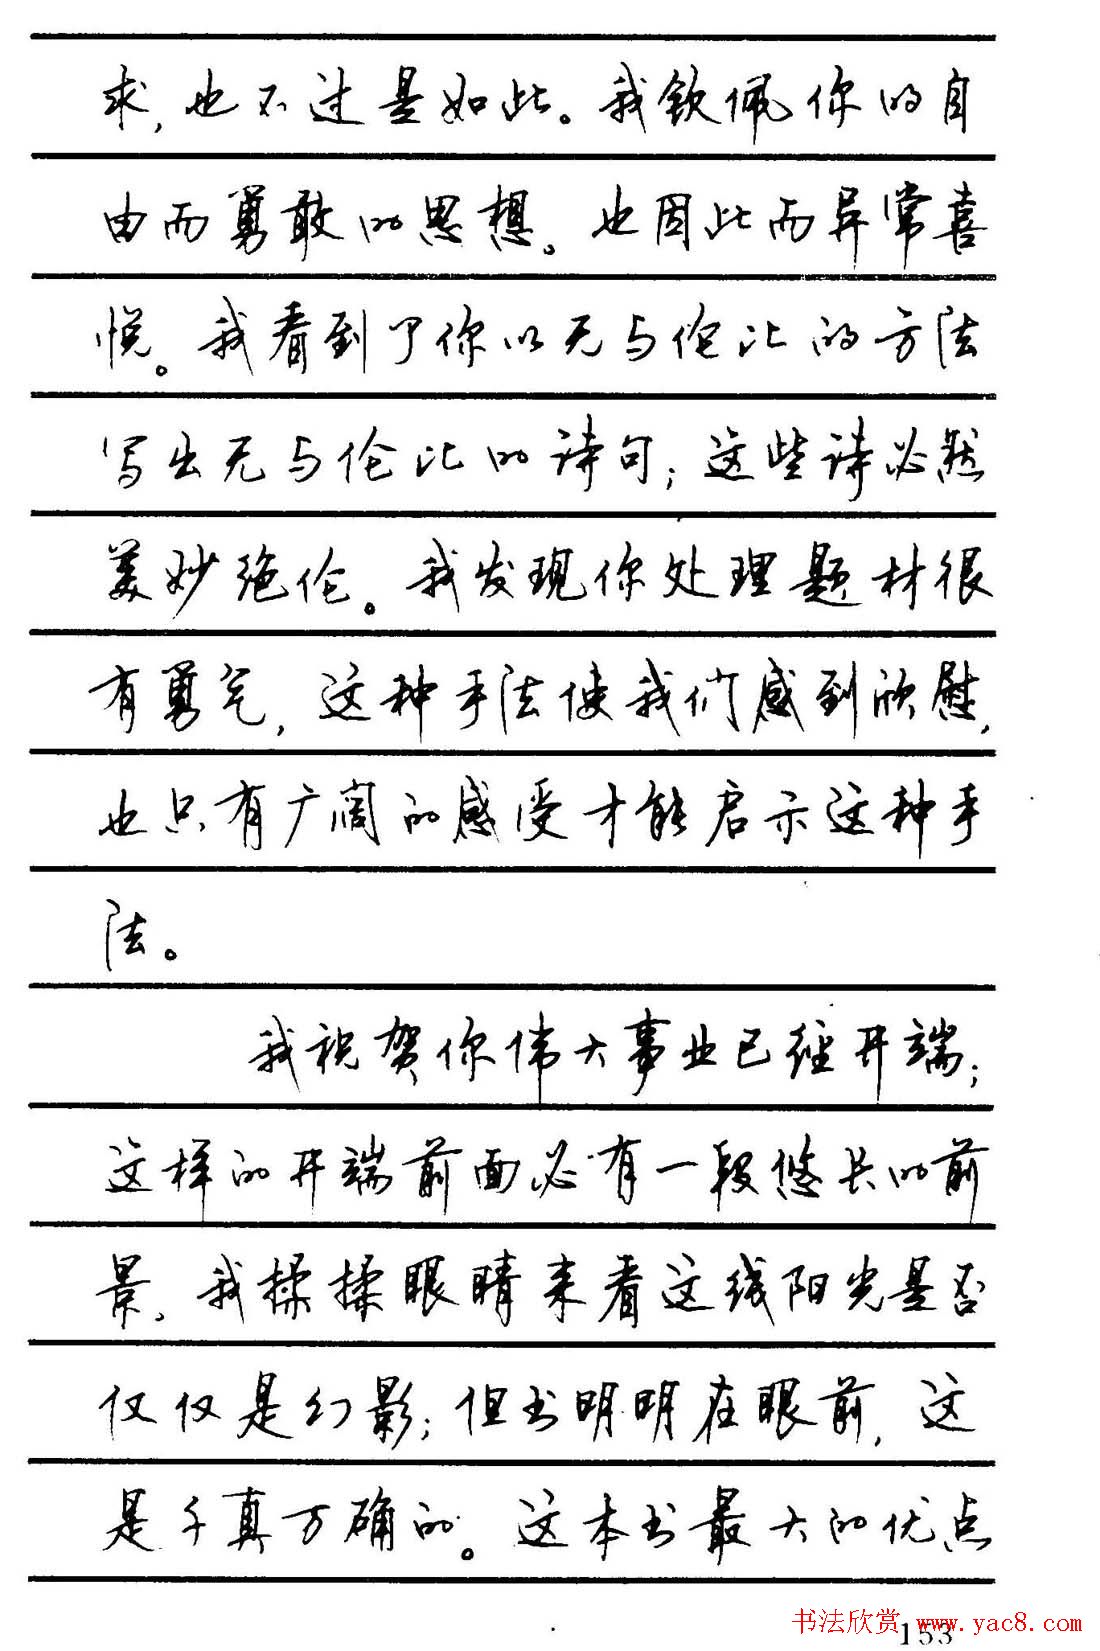 求,也不过是如此。我钦佩你的自
由而勇敢的思想。也因此而异常喜
悦。我看到了你以无与伦比的方法
写出无与伦比的诗句;这些诗必然
美妙绝伦。我发现你处理题材很
有勇气,这种手法使我们感到欣慰,
也只有广阔的感受才能启示这种手
法。
我祝贺你伟大事业已经开端;
这样的开端前面必有一段悠长的前
景。我揉揉眼睛来看这线阳光是否
仅仅是幻影;但书明明在眼前,这
是千真万确的。这本书最大的优点
153
书法欣赏 www.yac8.com